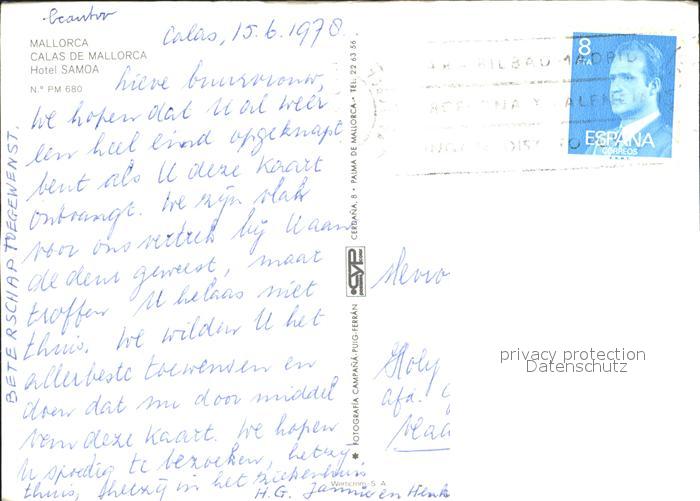 beantw
Calas, 15.6.1978
MALLORCA
CALAS DE MALLORCA
Hotel SAMOA
N.º PM 680
Lieve buurvrouw,
We hopen dat U al weer
een heel eind opgeknapt
bent als U deze kaart
ontvangt. We zijn vlak
voor ons vertrek bij U aan
de deur geweest, maar
troffen U helaas niet
thuis. We wilden U het
allerbeste toewensen en
doen dat nu door middel
van deze kaart. We hopen
U spoedig te bezoeken, hetzij
thuis, hetzij in het ziekenhuis
H.G. Jannie en Henk
BETERSCHAP TOEGEWENST.
FOTOGRAFÍA CAMPAÑÁ-PUIG-FERRÁN
CYP
CERDAÑA, 8 • PALMA DE MALLORCA • TEL. 22 63 56
BILBAO MADRID
8
PTA
ESPAÑA
CORREOS
Mevro
Holy
afd.
Vlaa
privacy protection
Datenschutz